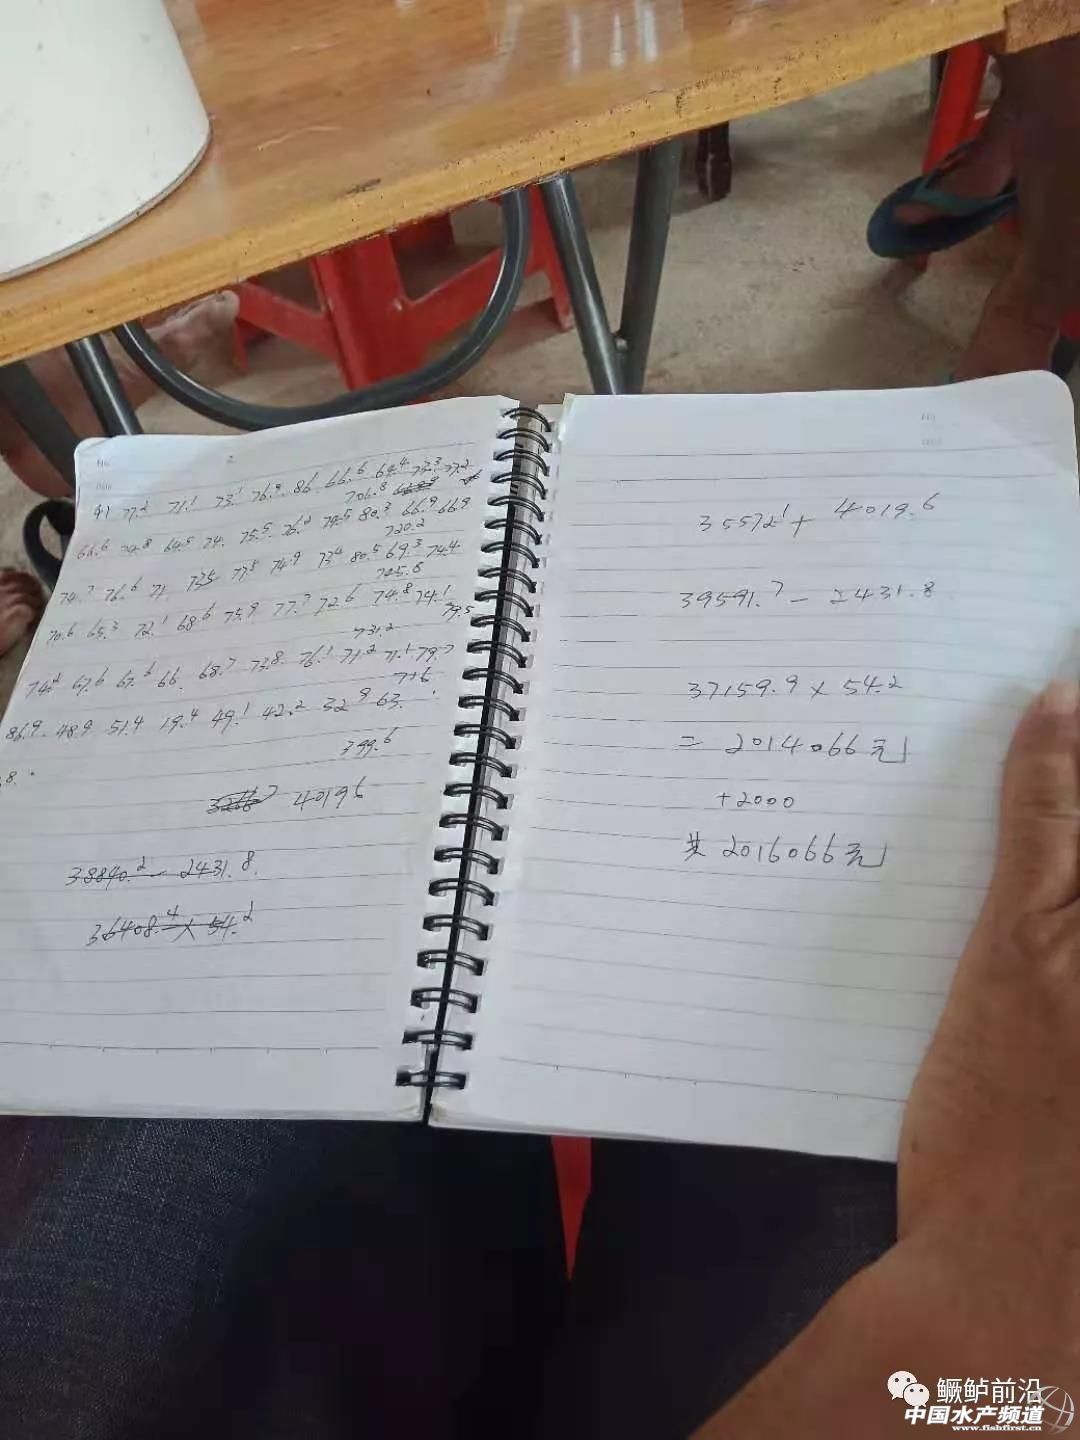 No
2
91 77.2 71.1 73.1 76.9 86 66.6 69.4 73.3 77.2
706.8
66.6 70.8 64.5 74. 75.5 76.2 79.5 80.3 66.9 66.9
720.2
74.7 76.6 71 73.5 77.8 74.9 73.4 80.5 69.3 74.4
725.8
70.6 65.3 72.1 68.6 75.9 77.7 72.6 74.8 74.1
79.5
731.2
74.2 67.6 67.6 66. 68.7 73.8 76.1 71.2 71.1 79.7
716
86.9. 48.9 51.4 19.4 49.1 42.2 32.9 63.
8.
399.6
4019.6
38840.2 - 2431.8.
36408.4 × 54.2
No
35572.1 + 4019.6
39591.7 - 2431.8
37159.9 × 54.2
= 2014066元
+2000
共 2016066元
鳜鲈前沿
中国水产频道
www.fishfirst.cn